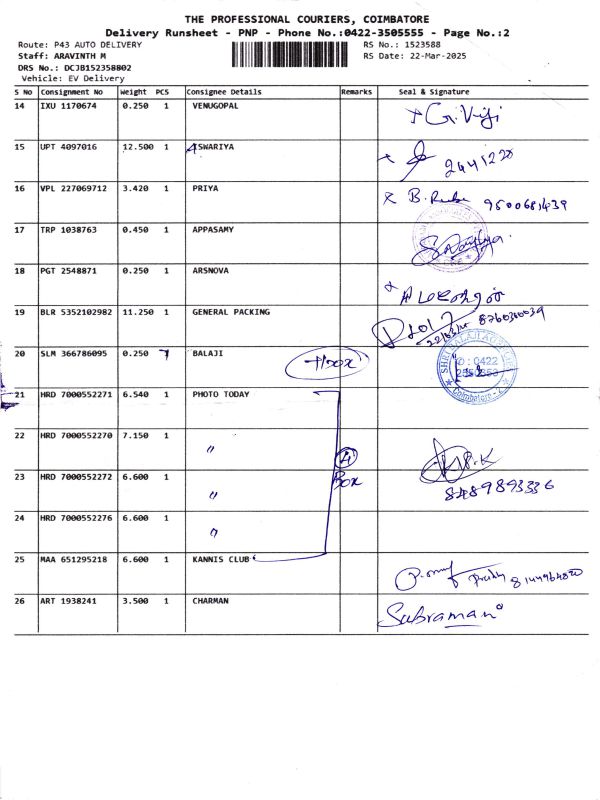 THE PROFESSIONAL COURIERS, COIMBATORE
Delivery Runsheet - PNP - Phone No.:0422-3505555 - Page No.:2
Route: P43 AUTO DELIVERY RS No.: 1523588
Staff: ARAVINTH M RS Date: 22-Mar-2025
DRS No.: DCJB152358802
Vehicle: EV Delivery
S No Consignment No Weight PCS Consignee Details Remarks Seal & Signature
14 IXU 1170674 0.250 1 VENUGOPAL
15 UPT 4097016 12.500 1 ASWARIYA
16 VPL 227069712 3.420 1 PRIYA 9500681439
17 TRP 1038763 0.450 1 APPASAMY
18 PGT 2548871 0.250 1 ARSNOVA
19 BLR 5352102982 11.250 1 GENERAL PACKING
20 SLM 366786095 0.250 BALAJI 0422
21 HRD 7000552271 6.540 1 PHOTO TODAY
22 HRD 7000552270 7.150 1 "
4
23 HRD 7000552272 6.600 1 " Box
24 HRD 7000552276 6.600 1 "
25 MAA 651295218 6.600 1 KANNIS CLUB
26 ART 1938241 3.500 1 CHARMAN Subraman